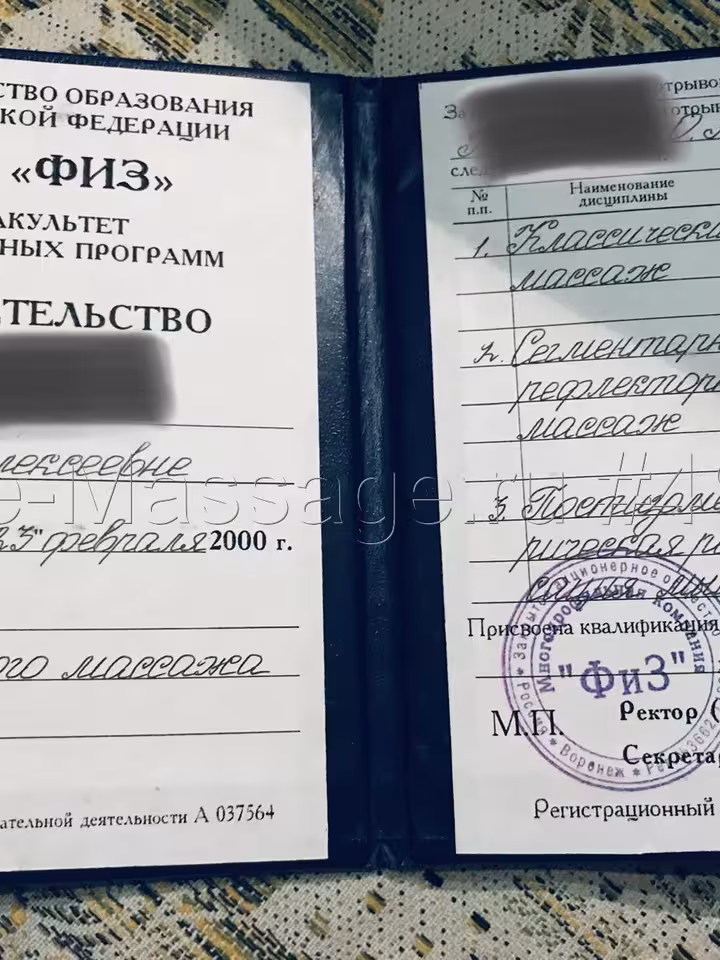 СТВО ОБРАЗОВАНИЯ
СКОЙ ФЕДЕРАЦИИ
«ФИЗ»
АКУЛЬТЕТ
НЫХ ПРОГРАММ
ЕТЕЛЬСТВО
лексеевне
23" февраля 2000 г.
ого массажа
ательной деятельности А 037564
отрывов
За отрыв
след
№ п.п.
Наименование
дисциплины
1. Классически
массаж
2. Сегментарн
рефлектор
массаж
3. Постизоме
рическая ре
сация мы
Присвоена квалификация
М.П.
Ректор (
Секретар
Регистрационный
Закрытое акционерное общество
Многопрофильная компания
"ФиЗ"
Россия * Воронеж *
e-Massage.ru #